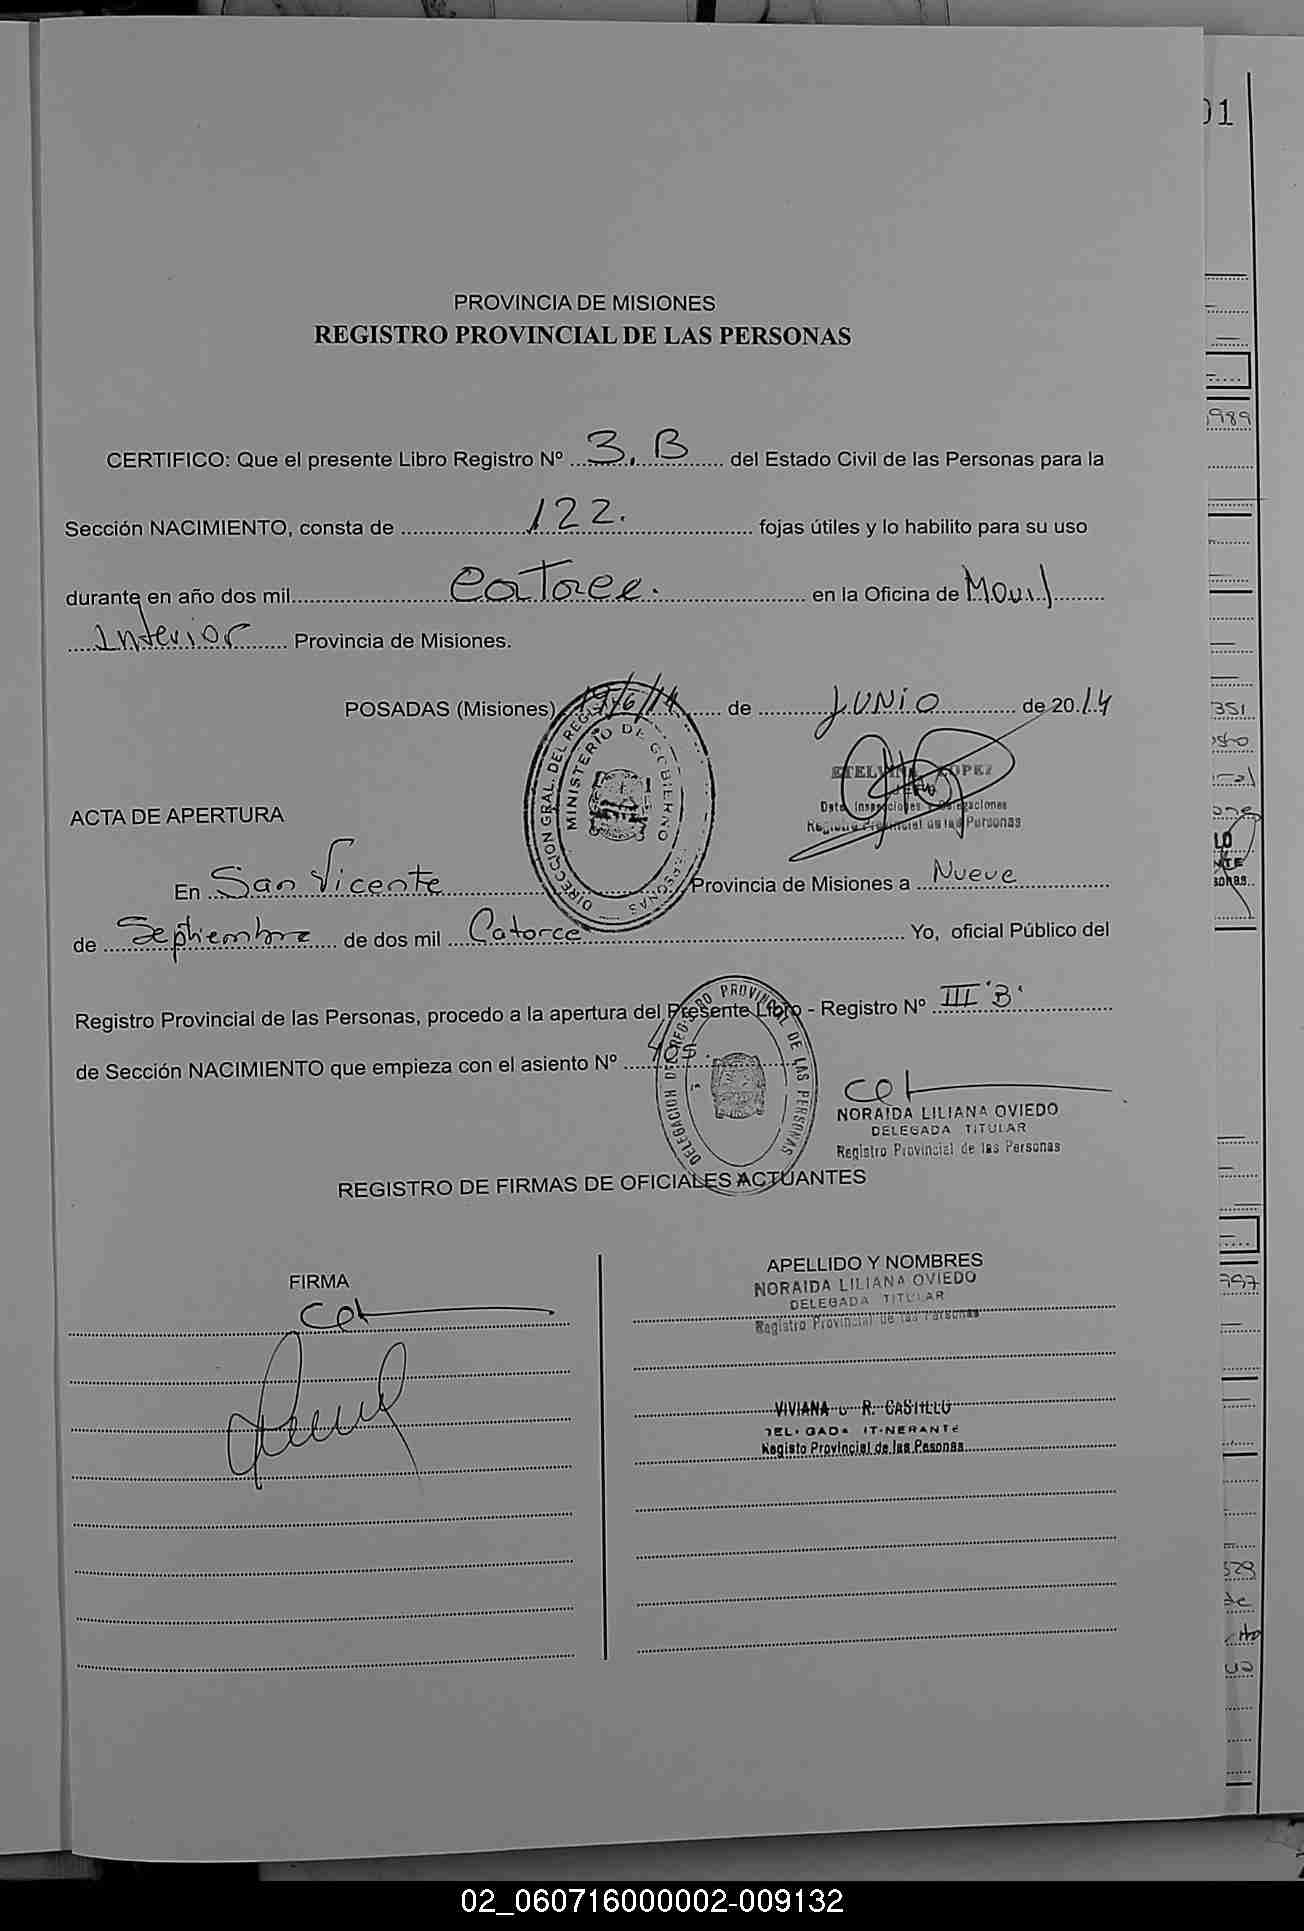 PROVINCIA DE MISIONES
REGISTRO PROVINCIAL DE LAS PERSONAS
CERTIFICO: Que el presente Libro Registro Nº 3.B del Estado Civil de las Personas para la
Sección NACIMIENTO, consta de 122. fojas útiles y lo habilito para su uso
durante en año dos mil catorce. en la Oficina de Movil
Interior Provincia de Misiones.
POSADAS (Misiones) 19/6/14 de JUNIO de 2014
DIRECCION GRAL. DEL REG PERSONAS
MINISTERIO DE GOBIERNO
LOPEZ
Registro Provincial de las Personas
ACTA DE APERTURA
En San Vicente Provincia de Misiones a Nueve
de Septiembre de dos mil Catorce Yo, oficial Público del
Registro Provincial de las Personas, procedo a la apertura del Presente Libro - Registro Nº III "B"
de Sección NACIMIENTO que empieza con el asiento Nº
DELEGACION DEL REGISTRO PROVINCIAL DE LAS PERSONAS
NORAIDA LILIANA OVIEDO
DELEGADA TITULAR
Registro Provincial de las Personas
REGISTRO DE FIRMAS DE OFICIALES ACTUANTES
FIRMA
APELLIDO Y NOMBRES
NORAIDA LILIANA OVIEDO
DELEGADA TITULAR
Registro Provincial de las Personas
VIVIANA R. CASTILLO
Registo Provincial de las Pesonas
01
989
351
997
529
02_060716000002-009132